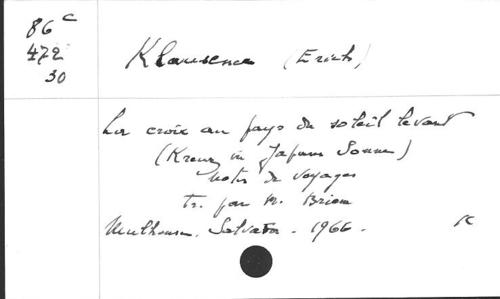 86 c
472
30
Klausener (Erich)
La croix au pays du soleil levant
(Kreuz in Japans Sonne)
notes de voyages
tr. par M. Briem
Mulhouse. Salvator. 1966.